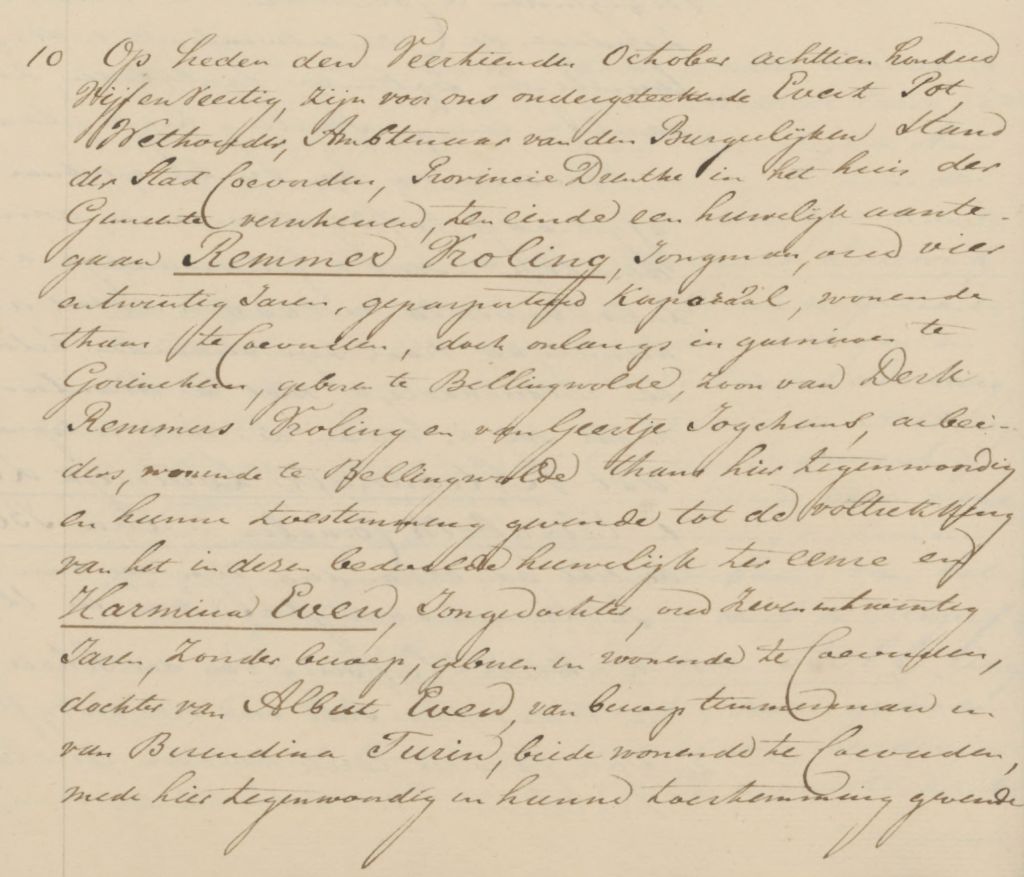 10 Op heden den Veertienden October achttien honderd
Vijf en Veertig, zijn voor ons ondergeteekende Evert Pot,
Wethouder, Ambtenaar van den Burgerlijken Stand
der Stad Coevorden, Provincie Drenthe in het huis der
Gemeente verschenen, ten einde een huwelijk aante-
gaan Remmer Vroling, Jongman, oud vier
entwintig Jaren, gepasporteerd Kaporaal, wonende
thans te Coevorden, doch onlangs in garnizoen te
Gorinchem, geboren te Bellingwolde, zoon van Derk
Remmers Vroling en van Geertje Jogchems, arbei-
ders, wonende te Bellingwolde thans hier tegenwoordig
en hunne toestemming gevende tot de voltrekking
van het in dezen bedoelde huwelijk ter eene en
Harmina Even, Jongedochter, oud zevenentwintig
Jaren, zonder beroep, geboren en wonende te Coevorden,
dochter van Albert Even, van beroep timmerman en
van Berendina Turin, beide wonende te Coevorden,
mede hier tegenwoordig en hunne toestemming gevende